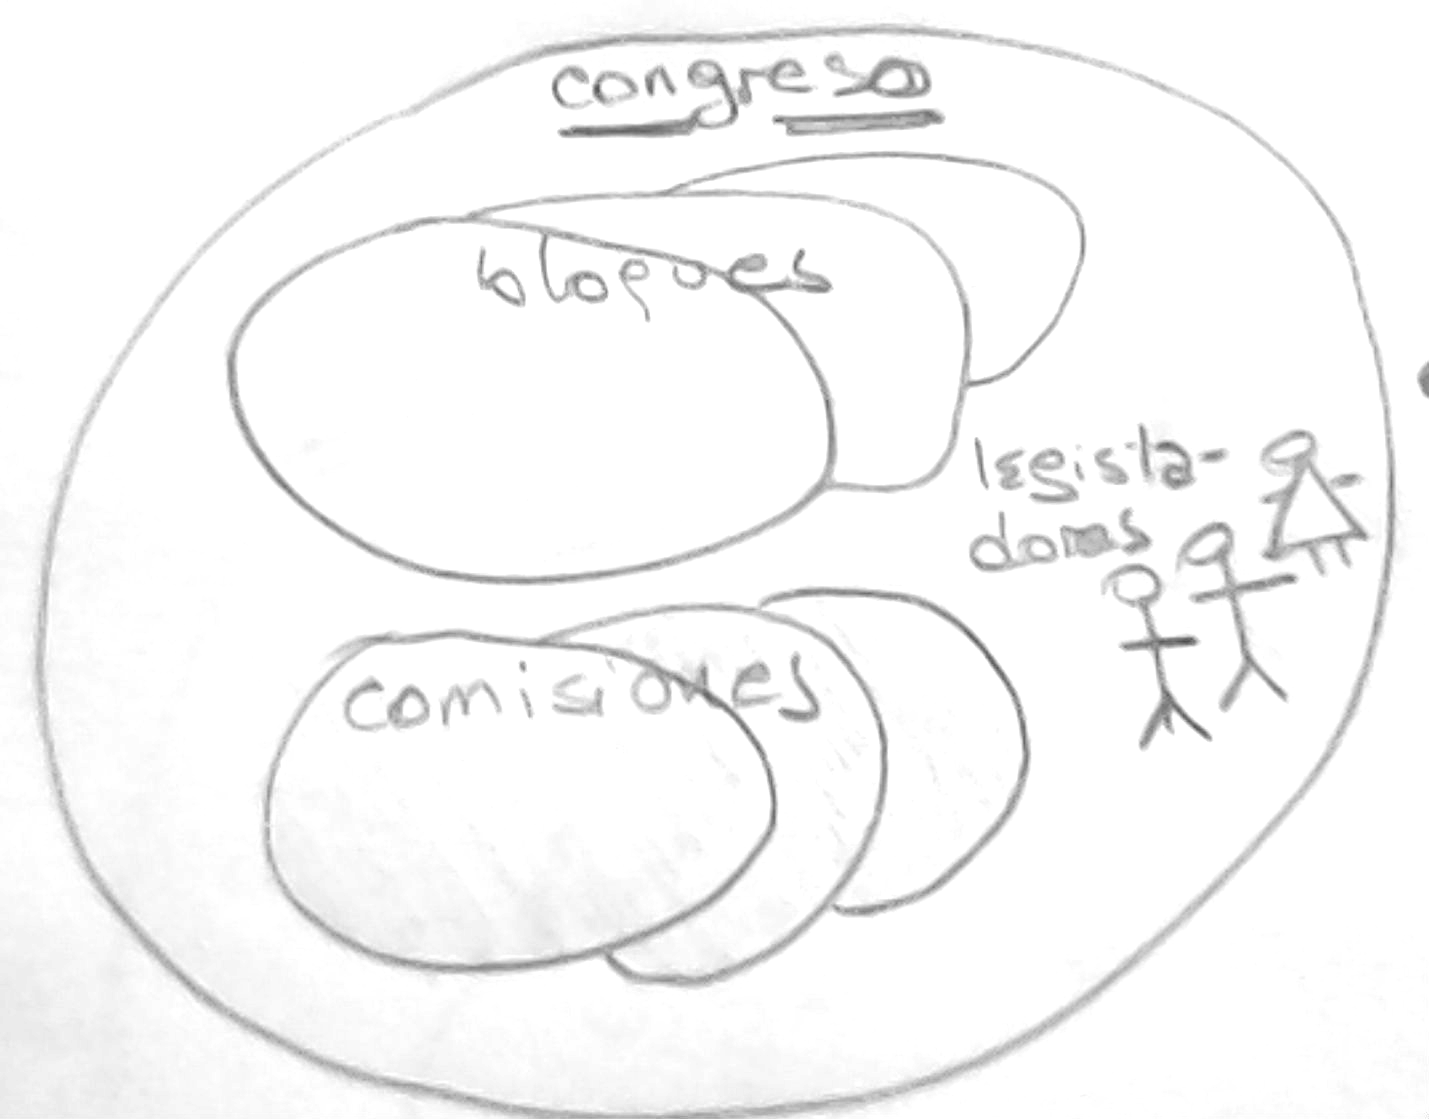 congreso
bloques
legisla-
dores
comisiones